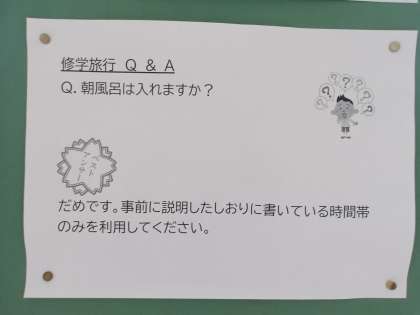 修学旅行 Q & A
Q. 朝風呂は入れますか?
? ? ? ? ? ? ?
ベスト
アンサー
だめです。事前に説明したしおりに書いている時間帯
のみを利用してください。